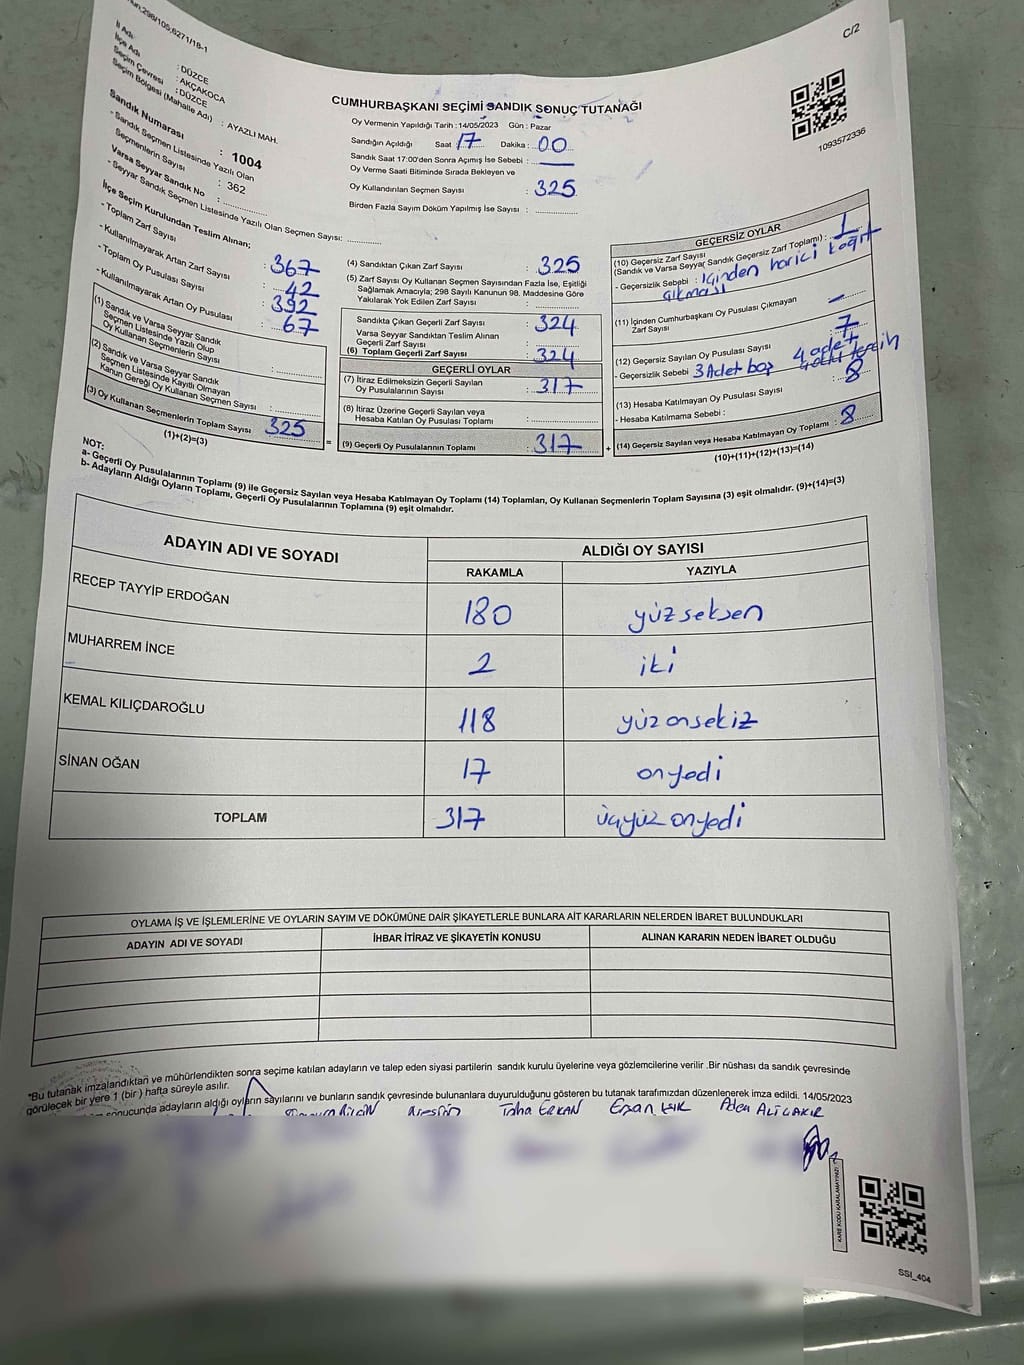 298/105,6271/18-1
C/2
İl Adı : DÜZCE
İlçe Adı : AKÇAKOCA
Seçim Çevresi : DÜZCE
Seçim Bölgesi (Mahalle Adı) : AYAZLI MAH.
Sandık Numarası : 1004
- Sandık Seçmen Listesinde Yazılı Olan
Seçmenlerin Sayısı : 362
Varsa Seyyar Sandık No :
- Seyyar Sandık Seçmen Listesinde Yazılı Olan Seçmen Sayısı:
CUMHURBAŞKANI SEÇİMİ SANDIK SONUÇ TUTANAĞI
Oy Vermenin Yapıldığı Tarih : 14/05/2023 Gün : Pazar
Sandığın Açıldığı Saat 17 Dakika : 00
Sandık Saat 17:00'den Sonra Açımış İse Sebebi :
Oy Verme Saati Bitiminde Sırada Bekleyen ve
Oy Kullandırılan Seçmen Sayısı : 325
Birden Fazla Sayım Döküm Yapılmış İse Sayısı :
1093572336
İlçe Seçim Kurulundan Teslim Alınan;
- Toplam Zarf Sayısı : 367
- Kullanılmayarak Artan Zarf Sayısı : 42
- Toplam Oy Pusulası Sayısı : 392
- Kullanılmayarak Artan Oy Pusulası : 67
(1) Sandık ve Varsa Seyyar Sandık
Seçmen Listesinde Yazılı Olup
Oy Kullanan Seçmenlerin Sayısı :
(2) Sandık ve Varsa Seyyar Sandık
Seçmen Listesinde Kayıtlı Olmayan
Kanun Gereği Oy Kullanan Seçmen Sayısı :
(3) Oy Kullanan Seçmenlerin Toplam Sayısı 325
(1)+(2)=(3)
(4) Sandıktan Çıkan Zarf Sayısı : 325
(5) Zarf Sayısı Oy Kullanan Seçmen Sayısından Fazla İse, Eşitliği
Sağlamak Amacıyla; 298 Sayılı Kanunun 98. Maddesine Göre
Yakılarak Yok Edilen Zarf Sayısı :
Sandıkta Çıkan Geçerli Zarf Sayısı : 324
Varsa Seyyar Sandıktan Teslim Alınan
Geçerli Zarf Sayısı :
(6) Toplam Geçerli Zarf Sayısı : 324
GEÇERLİ OYLAR
(7) İtiraz Edilmeksizin Geçerli Sayılan
Oy Pusulalarının Sayısı : 317
(8) İtiraz Üzerine Geçerli Sayılan veya
Hesaba Katılan Oy Pusulası Toplamı :
= (9) Geçerli Oy Pusulalarının Toplamı : 317 +
GEÇERSİZ OYLAR
(10) Geçersiz Zarf Sayısı
(Sandık ve Varsa Seyyar Sandık Geçersiz Zarf Toplamı) : 1
- Geçersizlik Sebebi : içinden harici kağıt
çıkması
(11) İçinden Cumhurbaşkanı Oy Pusulası Çıkmayan
Zarf Sayısı : –
(12) Geçersiz Sayılan Oy Pusulası Sayısı : 7
- Geçersizlik Sebebi 3 Adet boş 4 adet
tercih
(13) Hesaba Katılmayan Oy Pusulası Sayısı : 8
- Hesaba Katılmama Sebebi :
(14) Geçersiz Sayılan veya Hesaba Katılmayan Oy Toplamı : 8
(10)+(11)+(12)+(13)=(14)
NOT:
a- Geçerli Oy Pusulalarının Toplamı (9) ile Geçersiz Sayılan veya Hesaba Katılmayan Oy Toplamı (14) Toplamları, Oy Kullanan Seçmenlerin Toplam Sayısına (3) eşit olmalıdır. (9)+(14)=(3)
b- Adayların Aldığı Oyların Toplamı, Geçerli Oy Pusulalarının Toplamına (9) eşit olmalıdır.
ADAYIN ADI VE SOYADI ALDIĞI OY SAYISI
RAKAMLA YAZIYLA
RECEP TAYYİP ERDOĞAN 180 yüzseksen
MUHARREM İNCE 2 iki
KEMAL KILIÇDAROĞLU 118 yüzonsekiz
SİNAN OĞAN 17 onyedi
TOPLAM 317 üçyüzonyedi
OYLAMA İŞ VE İŞLEMLERİNE VE OYLARIN SAYIM VE DÖKÜMÜNE DAİR ŞİKAYETLERLE BUNLARA AİT KARARLARIN NELERDEN İBARET BULUNDUKLARI
ADAYIN ADI VE SOYADI İHBAR İTİRAZ VE ŞİKAYETİN KONUSU ALINAN KARARIN NEDEN İBARET OLDUĞU
*Bu tutanak imzalandıktan ve mühürlendikten sonra seçime katılan adayların ve talep eden siyasi partilerin sandık kurulu üyelerine veya gözlemcilerine verilir .Bir nüshası da sandık çevresinde
görülecek bir yere 1 (bir) hafta süreyle asılır.
sonucunda adayların aldığı oyların sayılarını ve bunların sandık çevresinde bulunanlara duyurulduğunu gösteren bu tutanak tarafımızdan düzenlenerek imza edildi. 14/05/2023
Taha ERKAN Adem ALİ ÇAKIR
KARE KODU KARALAMAYINIZ!
SSI_404